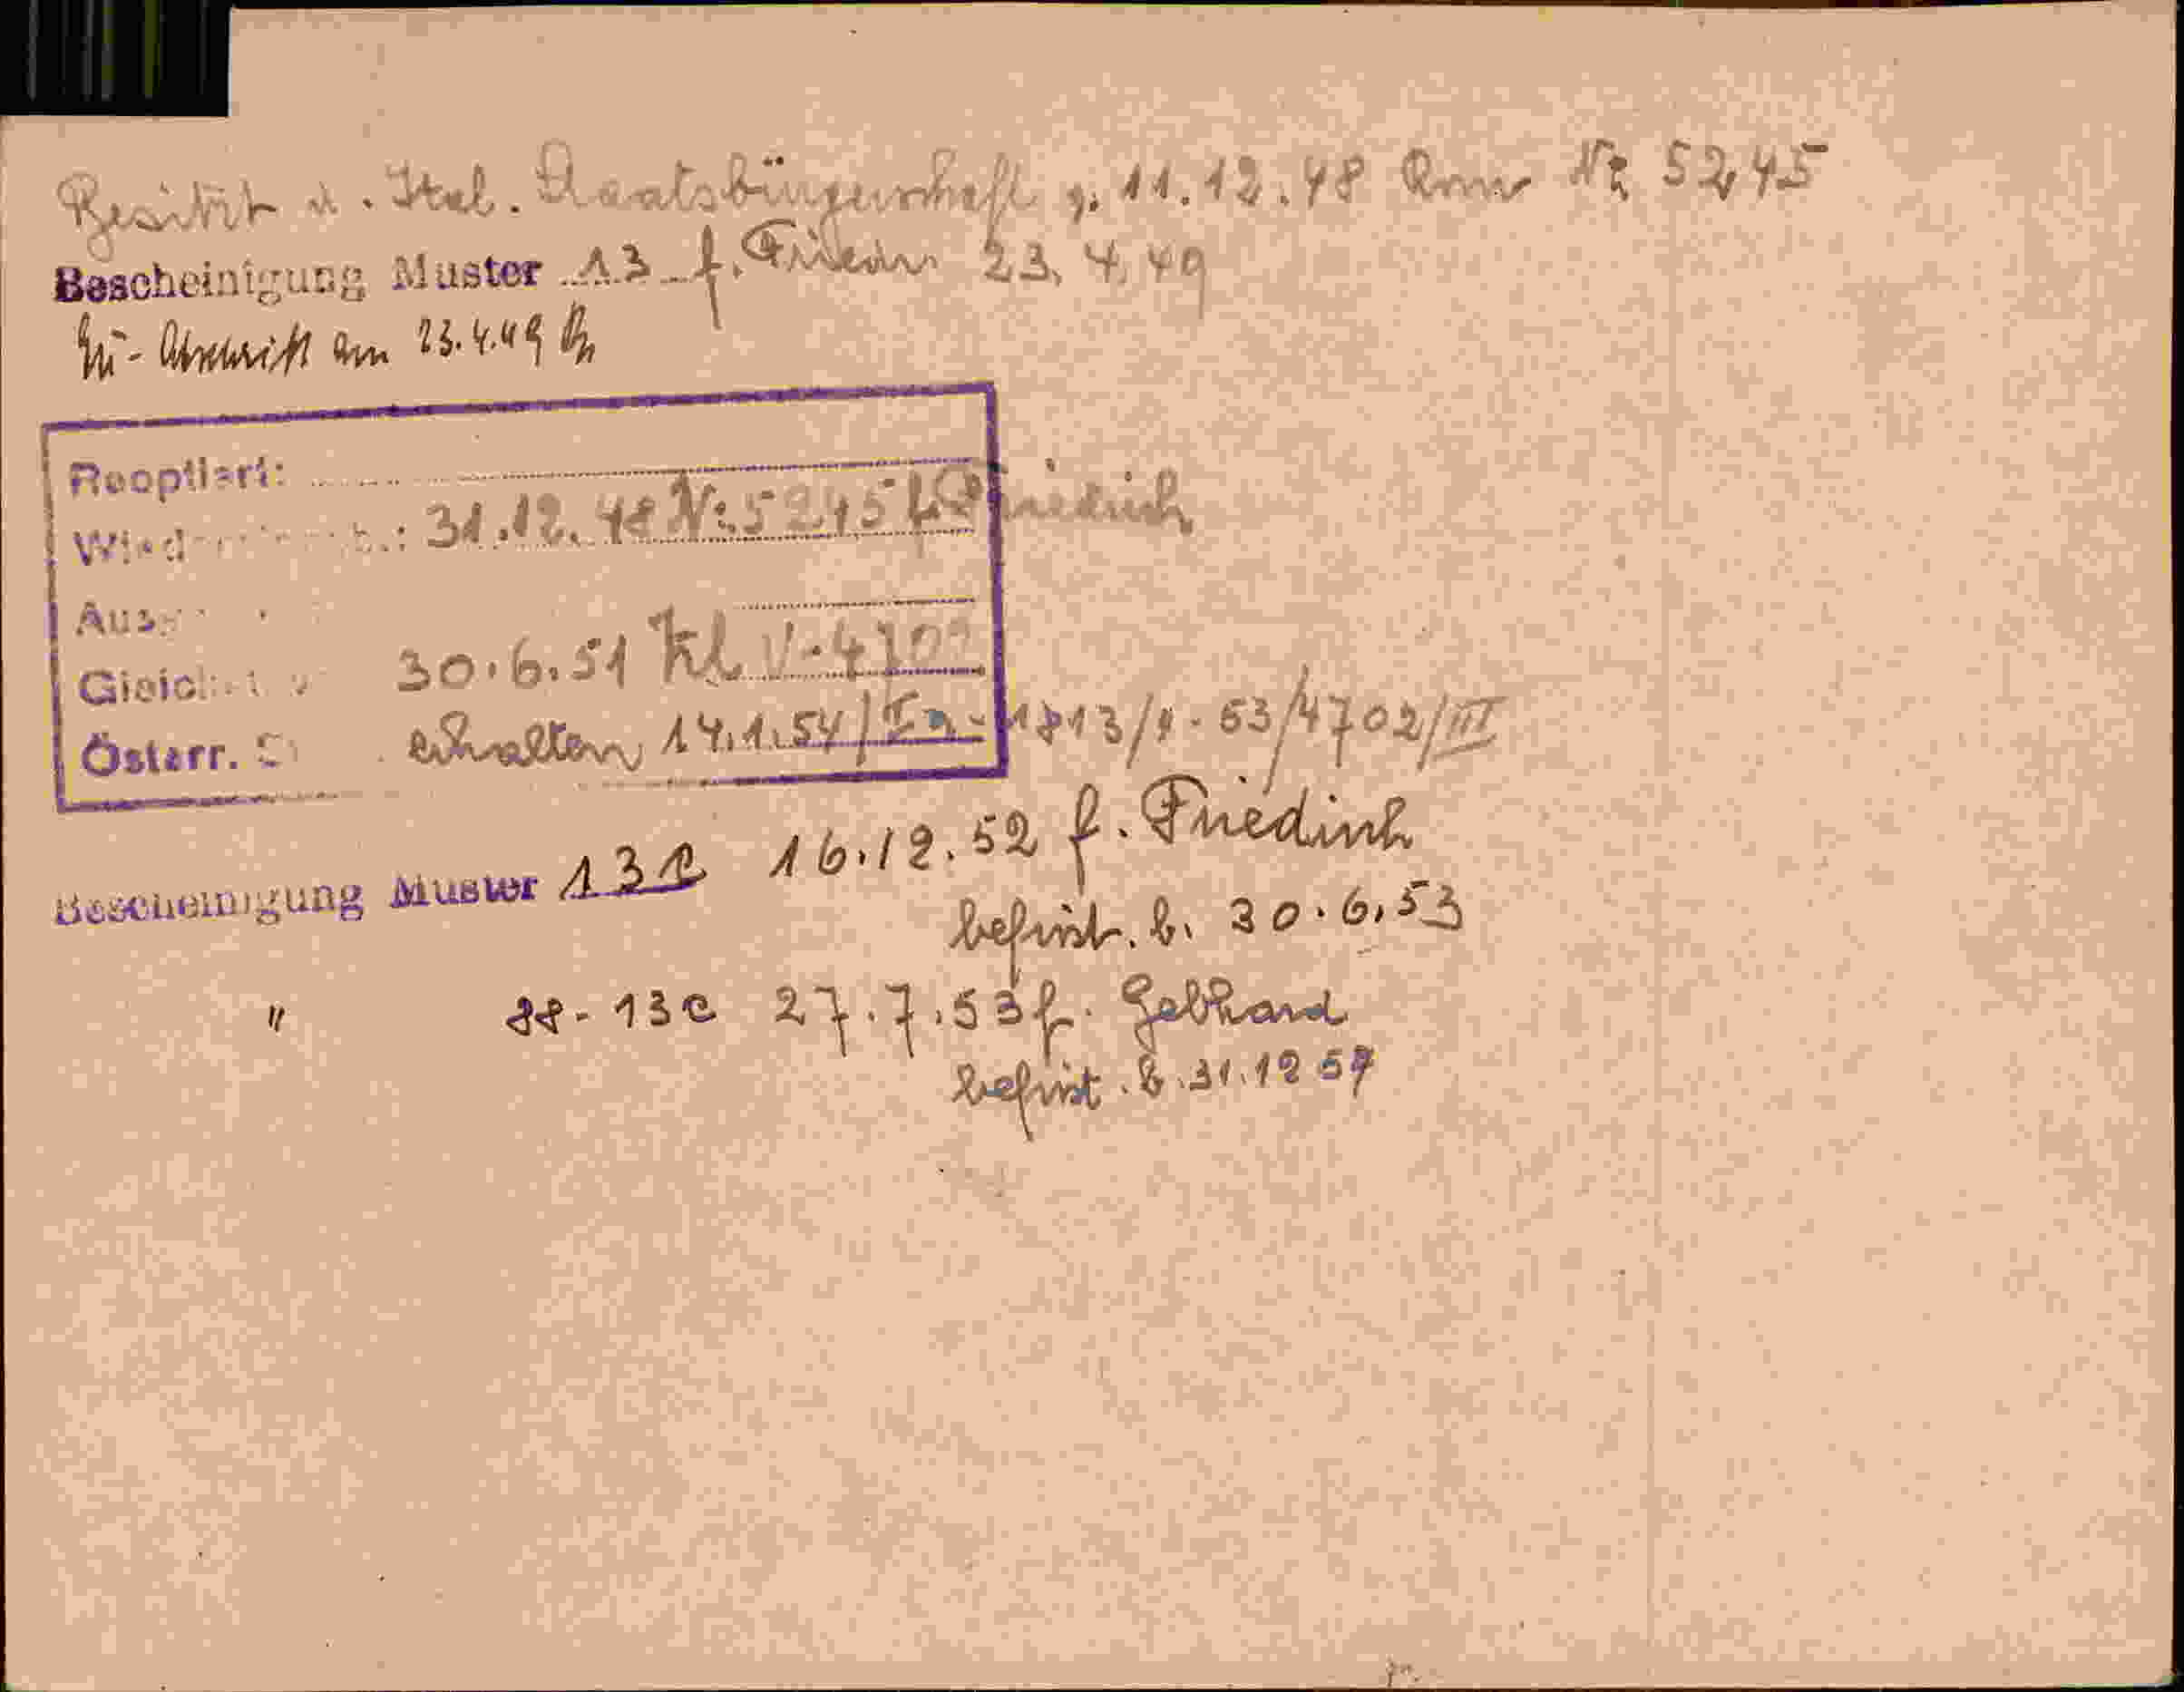 Besitzt d. Ital. Staatsbürgerschaft g. 11.12.48 Nr. 5245
Bescheinigung Muster 13 f. 23.4.49
am 23.4.49
Reoptiert:
31.12.48 Nr. 5245 f. Friedrich
30.6.51 Kl V-4702
Österr. erhalten 14.1.54/ 13/4702/III
Bescheinigung Muster 13c 16.12.52 f. Friedrich
befrist. b. 30.6.53
" 13c 27.7.53 f. Gebhard
befrist. b. 31.12 57